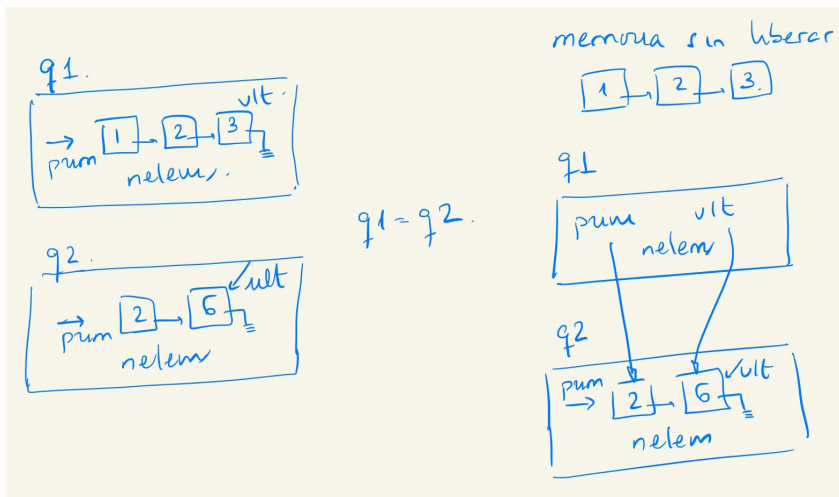 q1.
ult.
1 2 3
→ prim
nelem.
q2.
ult
2 6
→ prim
nelem
q1 = q2.
memoria sin liberar
1 2 3.
q1
prim ult
nelem
q2
prim ult
→ 2 6
nelem